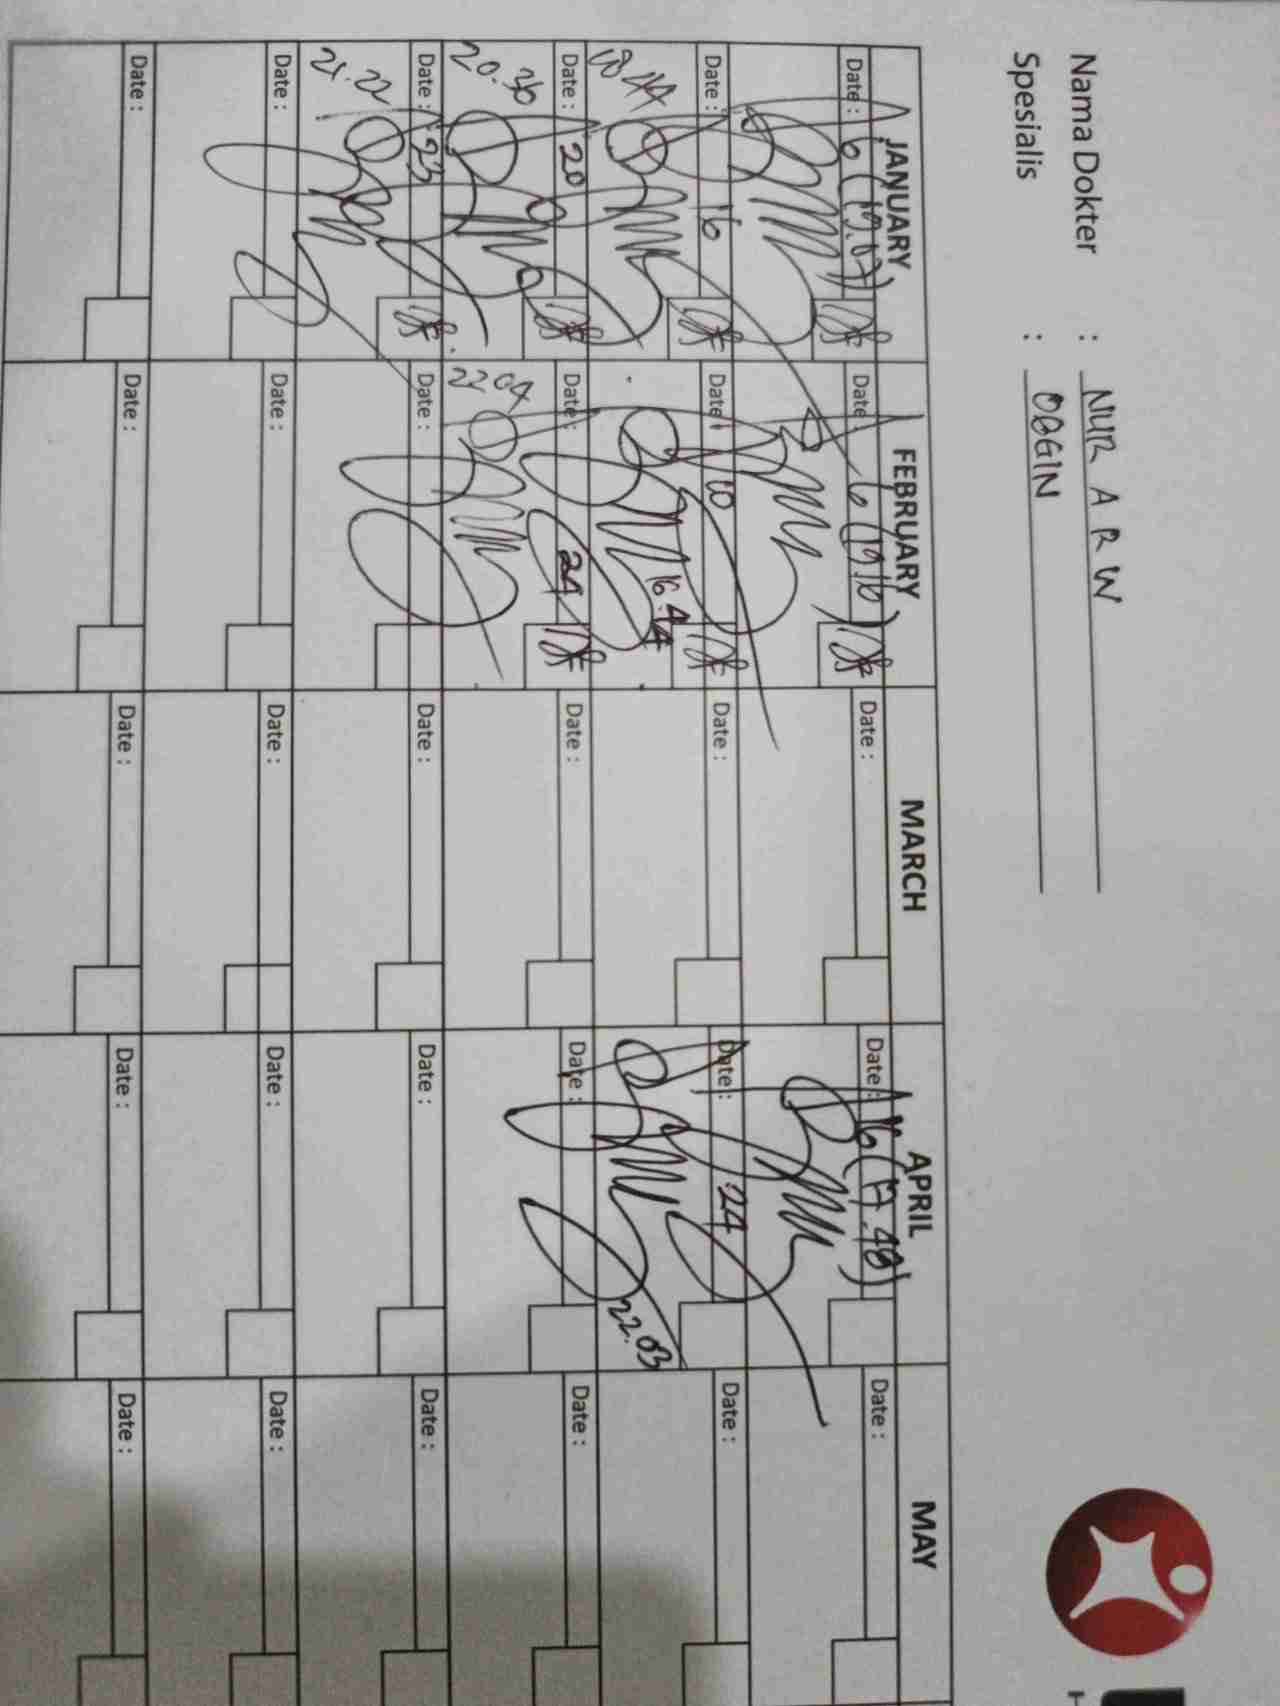 Nama Dokter : NUR A R W
Spesialis : OBGIN
JANUARY FEBRUARY MARCH APRIL MAY
Date : 6 (19.07) Date : 6 (19.16) Date : Date : 16 (17.48) Date :
Date : 16 Date : 10 Date : Date : 24 Date :
18.44 16.44 22.03
Date : 20 Date : 24 Date : Date : Date :
20.30 22.04
Date : 23 Date : Date : Date : Date :
21.22
Date : Date : Date : Date : Date :
Date : Date : Date : Date : Date :